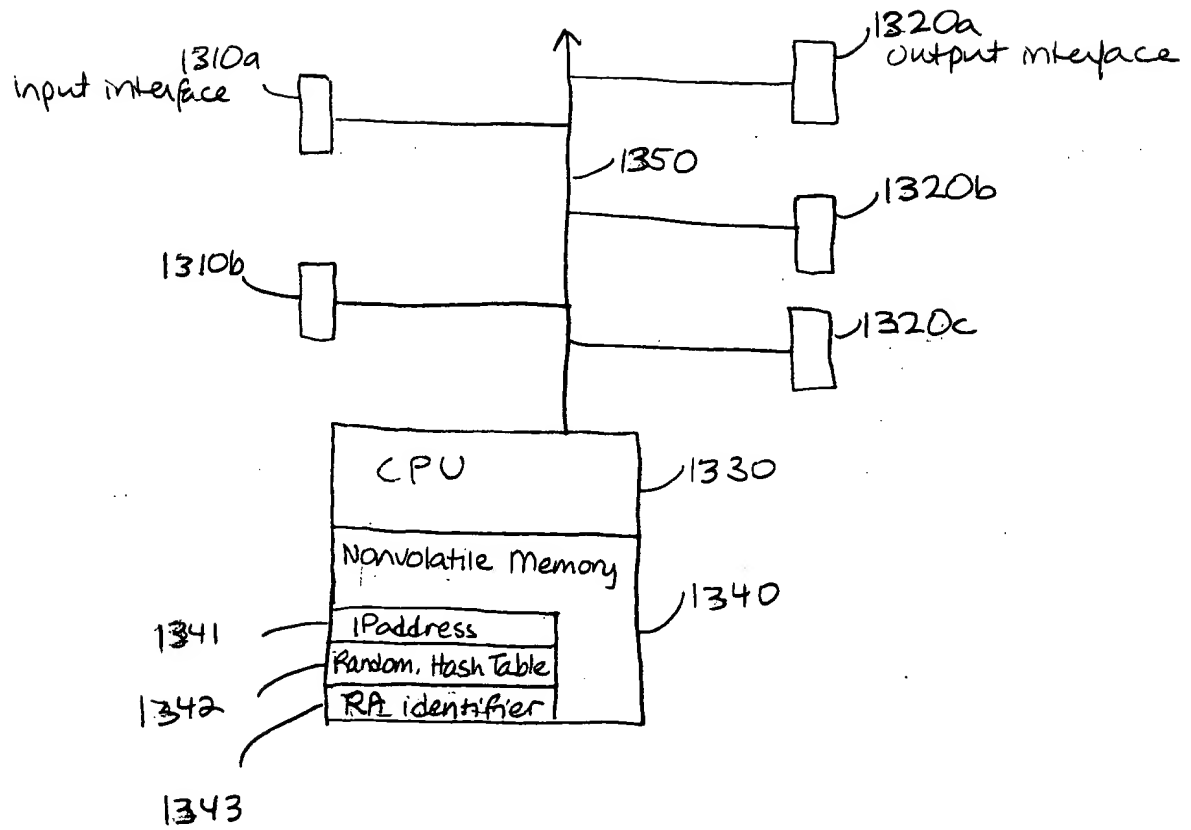 1310a
input interface
1320a
output interface
1350
1320b
1310b
1320c
CPU
1330
Nonvolatile Memory
1340
1341
IPaddress
1342
Random. Hash Table
RA identifier
1343